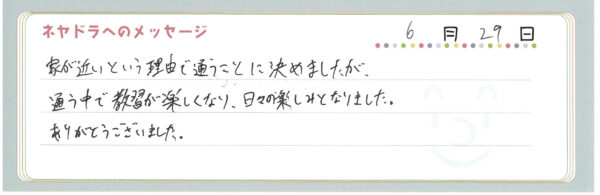 ネヤドラへのメッセージ
6月29日
家が近いという理由で通うことに決めましたが、
通う中で教習が楽しくなり、日々の楽しみとなりました。
ありがとうございました。